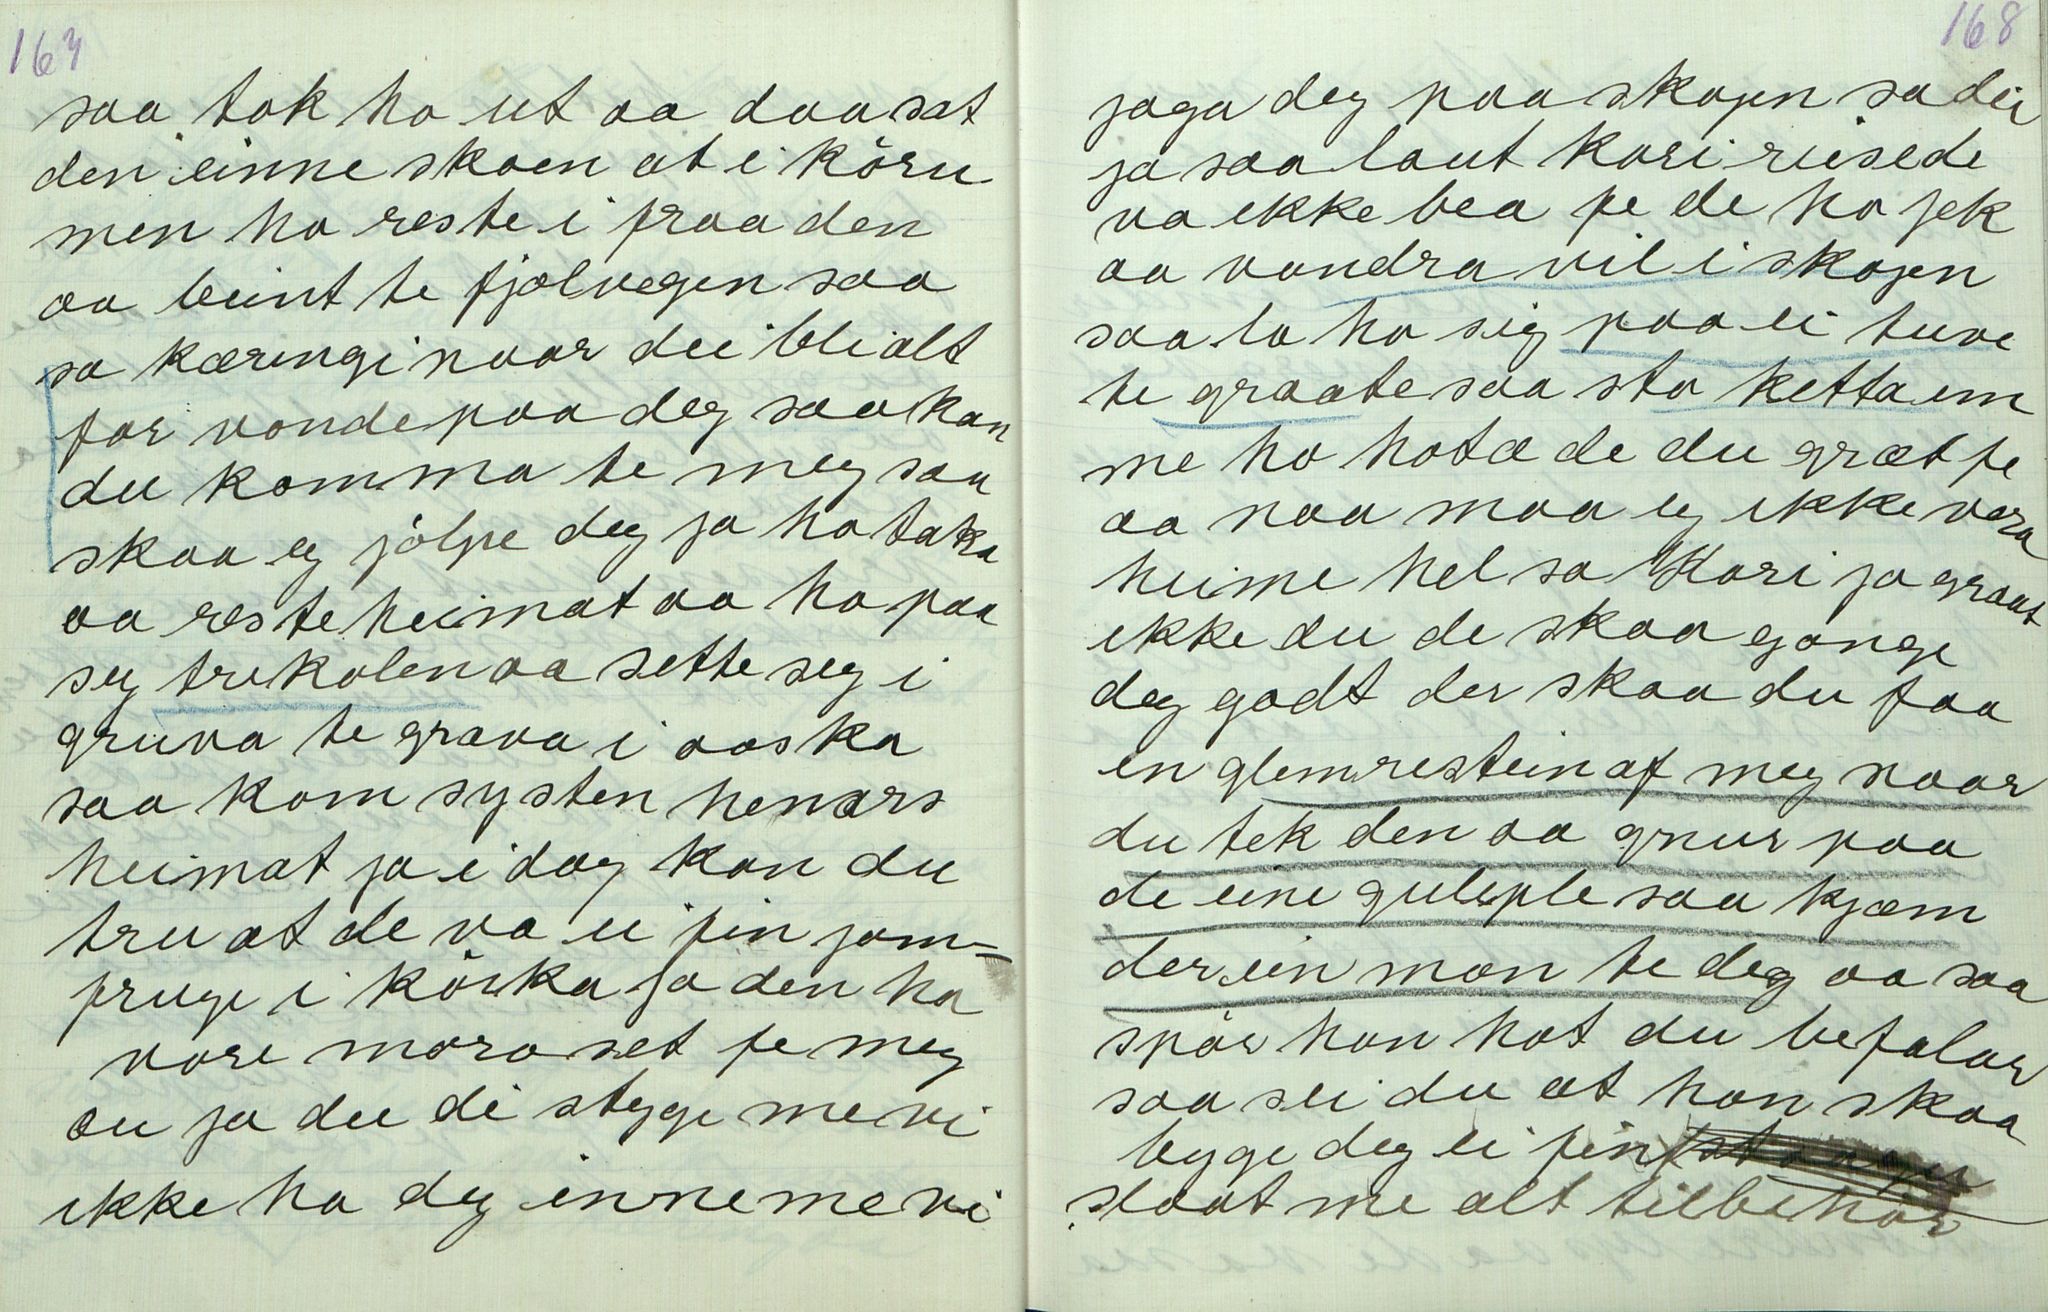 167
saa tok ho ut aa daa sat
den einne skoen at i köru
men ho reste i fraa den
aa beint te fjolvegen saa
sa kæringi naar dei bli alt
for vonde paa deg saa kan
du komma te meg saa
skaa eg jölpe deg ja ho taka
aa reste heimat aa ho paa
seg trekolen aa sette seg i
gruva te grava i aaska
saa kom systen henars
heimat ja i dag kan du
tru at de va ei fin jom=
fruge i körka ja den ha
vore moro set fe meg
au ja du di stygge me vi
ikke ha deg inne me vi
168
jaga deg paa skogen sa dei
ja saa laut Kari reise de
va ikke bea fe de ho jek
aa vandra vil i skogen
saa la ho sig paa ei tuve
te graate saa sto ketta em
me ho hota de du græt fe
aa naa maa eg ikke vera
heime hel sa Kari ja graat
ikke du de skaa gange
deg godt der skaa du faa
en glemrestein af meg naar
du tek den aa gnur paa
de eine guleple saa kjæm
der ein man te deg aa saa
spör han hot du befalar
saa sei du at han skaa
byge deg ei fin
slaat me alt tilbehör